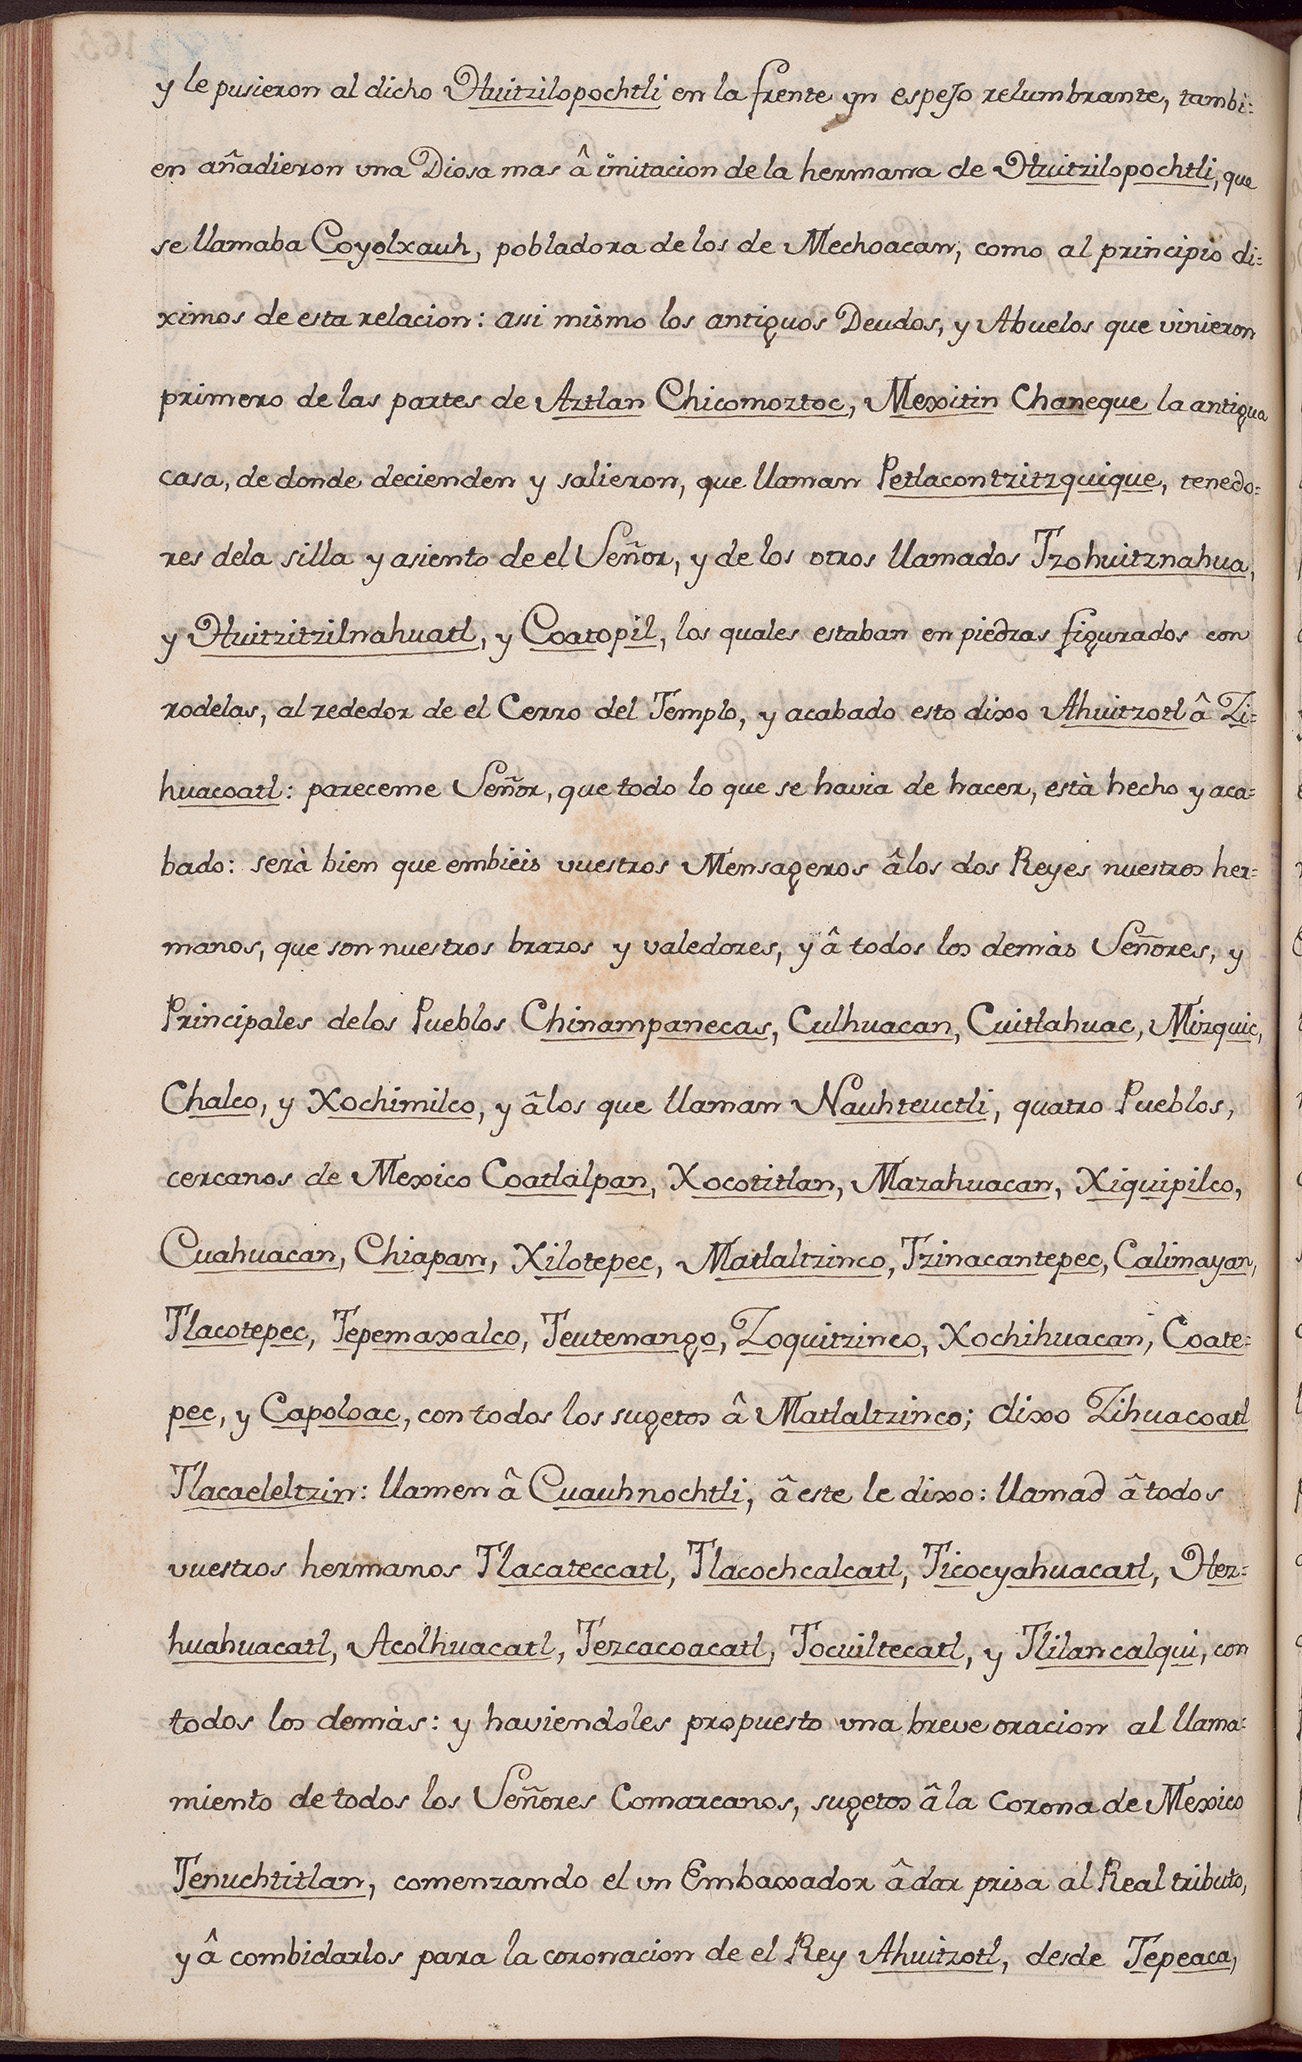 y le pusieron al dicho Huitzilopochtli en la frente un espejo relumbrante, tambi=
en añadieron una Diosa mas â imitacion de la hermana de Huitzilopochtli, que
se llamaba Coyolxauh, pobladora de los de Mechoacan, como al principio di=
ximos de esta relacion: assi mismo los antiguos Deudos, y Abuelos que vinieron
primero de las partes de Aztlan Chicomoztoc, Mexitin Chaneque la antigua
casa, de donde decienden y salieron, que llaman Petlacontzitzquique, tenedo=
res dela silla y asiento de el Señor, y de los otros llamados Tzohuitznahua,
y Huitzitzilnahuatl, y Coatopil, los quales estaban en piedras figurados con
rodelas, al rededor de el Cerro del Templo, y acabado esto dixo Ahuitzotl â Zi=
huacoatl: pareceme Señor, que todo lo que se havia de hacer, està hecho y aca=
bado: serà bien que embieis vuestros Mensageros âlos dos Reyes nuestros her=
manos, que son nuestros brazos y valedores, y â todos los demàs Señores, y
Principales delos Pueblos Chinampanecas, Culhuacan, Cuitlahuac, Mizquic,
Chalco, y Xochimilco, y âlos que llaman Nauhteuctli, quatro Pueblos,
cercanos de Mexico Coatlalpan, Xocotitlan, Mazahuacan, Xiquipilco,
Cuahuacan, Chiapan, Xilotepec, Matlaltzinco, Tzinacantepec, Calimayan,
Tlacotepec, Tepemaxalco, Teutenango, Zoquitzinco, Xochihuacan, Coate=
pec, y Capoloac, con todos los sugetos â Matlaltzinco; dixo Zihuacoatl
Tlacaeleltzin: llamen â Cuauhnochtli, â este le dixo: llamad â todos
vuestros hermanos Tlacateccatl, Tlacochcalcatl, Ticocyahuacatl, Hez=
huahuacatl, Acolhuacatl, Tezcacoacatl, Tocuiltecatl, y Tlilancalqui, con
todos los demàs: y haviendoles propuesto una breve oracion al llama=
miento de todos los Señores Comarcanos, sugetos â la Corona de Mexico
Tenuchtitlan, comenzando el un Embaxador â dar prisa al Real tributo,
y â combidarlos para la coronacion de el Rey Ahuitzotl, desde Tepeaca,